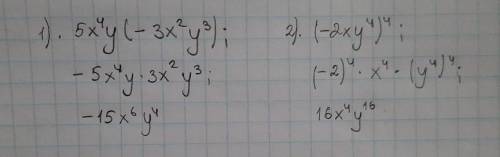 1). 5x⁴y(-3x²y³);
-5x⁴y·3x²y³;
-15x⁶y⁴
2). (-2xy⁴)⁴;
(-2)⁴·x⁴·(y⁴)⁴;
16x⁴y¹⁶